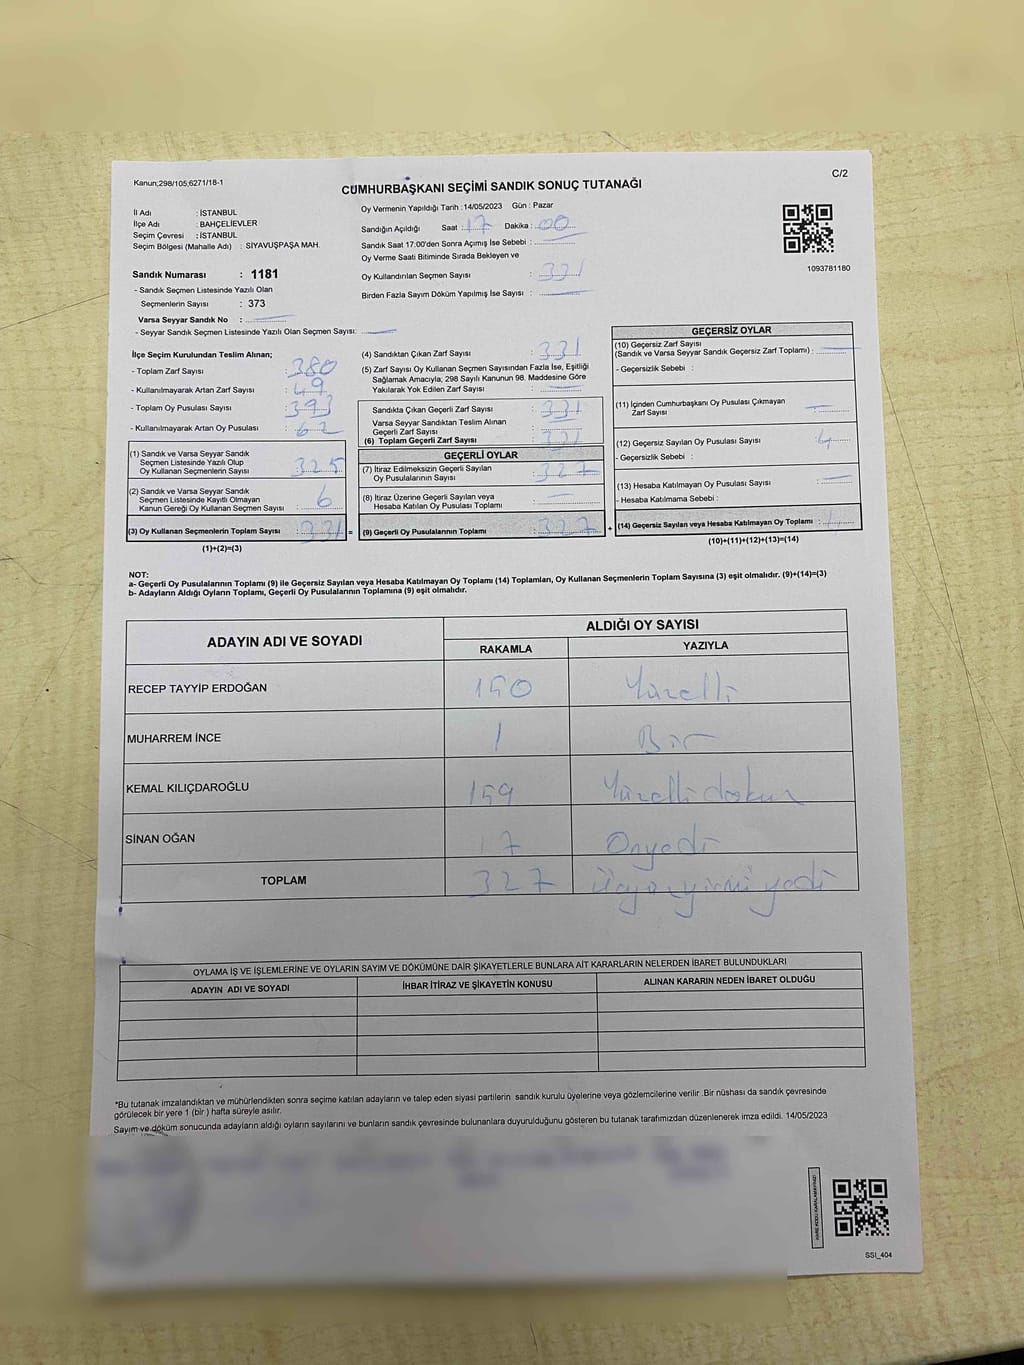 Kanun;298/105;6271/18-1
C/2
CUMHURBAŞKANI SEÇİMİ SANDIK SONUÇ TUTANAĞI
İl Adı : İSTANBUL
İlçe Adı : BAHÇELİEVLER
Seçim Çevresi : İSTANBUL
Seçim Bölgesi (Mahalle Adı) : SİYAVUŞPAŞA MAH.
Sandık Numarası : 1181
- Sandık Seçmen Listesinde Yazılı Olan
Seçmenlerin Sayısı : 373
Varsa Seyyar Sandık No :
- Seyyar Sandık Seçmen Listesinde Yazılı Olan Seçmen Sayısı:
Oy Vermenin Yapıldığı Tarih :14/05/2023 Gün : Pazar
Sandığın Açıldığı Saat : 17 Dakika : 00
Sandık Saat 17:00'den Sonra Açımış İse Sebebi :
Oy Verme Saati Bitiminde Sırada Bekleyen ve
Oy Kullandırılan Seçmen Sayısı : 331
Birden Fazla Sayım Döküm Yapılmış İse Sayısı :
1093781180
İlçe Seçim Kurulundan Teslim Alınan;
- Toplam Zarf Sayısı : 380
- Kullanılmayarak Artan Zarf Sayısı : 49
- Toplam Oy Pusulası Sayısı : 393
- Kullanılmayarak Artan Oy Pusulası : 62
(1) Sandık ve Varsa Seyyar Sandık
Seçmen Listesinde Yazılı Olup
Oy Kullanan Seçmenlerin Sayısı : 325
(2) Sandık ve Varsa Seyyar Sandık
Seçmen Listesinde Kayıtlı Olmayan
Kanun Gereği Oy Kullanan Seçmen Sayısı : 6
(3) Oy Kullanan Seçmenlerin Toplam Sayısı : 331 =
(1)+(2)=(3)
(4) Sandıktan Çıkan Zarf Sayısı : 331
(5) Zarf Sayısı Oy Kullanan Seçmen Sayısından Fazla İse, Eşitliği
Sağlamak Amacıyla; 298 Sayılı Kanunun 98. Maddesine Göre
Yakılarak Yok Edilen Zarf Sayısı :
Sandıkta Çıkan Geçerli Zarf Sayısı : 331
Varsa Seyyar Sandıktan Teslim Alınan
Geçerli Zarf Sayısı :
(6) Toplam Geçerli Zarf Sayısı : 331
GEÇERLİ OYLAR
(7) İtiraz Edilmeksizin Geçerli Sayılan
Oy Pusulasının Sayısı : 327
(8) İtiraz Üzerine Geçerli Sayılan veya
Hesaba Katılan Oy Pusulası Toplamı :
(9) Geçerli Oy Pusulalarının Toplamı : 327 +
GEÇERSİZ OYLAR
(10) Geçersiz Zarf Sayısı
(Sandık ve Varsa Seyyar Sandık Geçersiz Zarf Toplamı) :
- Geçersizlik Sebebi :
(11) İçinden Cumhurbaşkanı Oy Pusulası Çıkmayan
Zarf Sayısı :
(12) Geçersiz Sayılan Oy Pusulası Sayısı : 4
- Geçersizlik Sebebi :
(13) Hesaba Katılmayan Oy Pusulası Sayısı :
- Hesaba Katılmama Sebebi :
(14) Geçersiz Sayılan veya Hesaba Katılmayan Oy Toplamı :
(10)+(11)+(12)+(13)=(14)
NOT:
a- Geçerli Oy Pusulalarının Toplamı (9) ile Geçersiz Sayılan veya Hesaba Katılmayan Oy Toplamı (14) Toplamları, Oy Kullanan Seçmenlerin Toplam Sayısına (3) eşit olmalıdır. (9)+(14)=(3)
b- Adayların Aldığı Oyların Toplamı, Geçerli Oy Pusulalarının Toplamına (9) eşit olmalıdır.
ADAYIN ADI VE SOYADI
ALDIĞI OY SAYISI
RAKAMLA YAZIYLA
RECEP TAYYİP ERDOĞAN 150 Yüzelli
MUHARREM İNCE 1 Bir
KEMAL KILIÇDAROĞLU 159 Yüzelli dokuz
SİNAN OĞAN 17 Onyedi
TOPLAM 327 Üçyüzyirmi yedi
OYLAMA İŞ VE İŞLEMLERİNE VE OYLARIN SAYIM VE DÖKÜMÜNE DAİR ŞİKAYETLERLE BUNLARA AİT KARARLARIN NELERDEN İBARET BULUNDUKLARI
ADAYIN ADI VE SOYADI İHBAR İTİRAZ VE ŞİKAYETİN KONUSU ALINAN KARARIN NEDEN İBARET OLDUĞU
*Bu tutanak imzalandıktan ve mühürlendikten sonra seçime katılan adayların ve talep eden siyasi partilerin sandık kurulu üyelerine veya gözlemcilerine verilir .Bir nüshası da sandık çevresinde
görülecek bir yere 1 (bir ) hafta süreyle asılır.
Sayım ve döküm sonucunda adayların aldığı oyların sayılarını ve bunların sandık çevresinde bulunanlara duyurulduğunu gösteren bu tutanak tarafımızdan düzenlenerek imza edildi. 14/05/2023
SSI_404